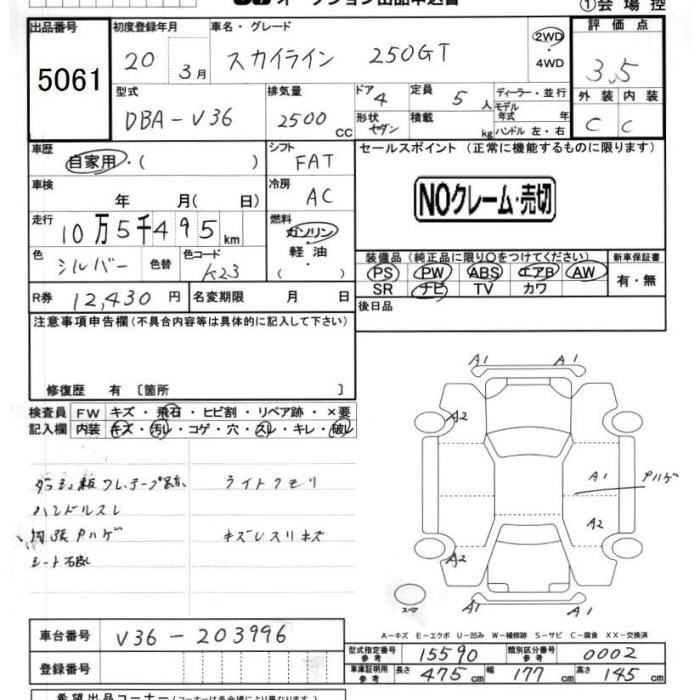 オークション出品申込書 ①会場控
出品番号 初度登録年月 車名・グレード 評価点
5061 20 3月 スカイライン 250GT 2WD ・ 4WD 3.5
型式 排気量 ドア 4 定員 5人 ディーラー・並行 外装 内装
DBA-V36 2500cc 形状 セダン 積載 kg モデル年式 年 ハンドル 左・右 C C
車歴 自家用・( ) シフト FAT セールスポイント (正常に機能するものに限ります)
車検 年 月(日) 冷房 AC NOクレーム・売切
走行 10万5千495km 燃料 ガソリン・軽油・( )
色 シルバー 色替 色コード K23 装備品 (純正品に限り○をつけてください) 新車保証書
PS PW ABS エアB AW 有・無
SR ナビ TV カワ
R券 12,430円 名変期限 月 日 後日品
注意事項申告欄 (不具合内容等は具体的に記入して下さい)
修復歴 有 〔箇所 〕
検査員 FW キズ・飛石・ヒビ割・リペア跡・×要
記入欄 内装 キズ・汚レ・コゲ・穴・スレ・キレ・破レ
ライトクモリ
ハンドルスレ
Pハゲ キズレスリキズ
シート
A1 A1
A2
A1 Pハゲ
A2
A2
スペア A1 A1
A-キズ E-エクボ U-凹み W-補修跡 S-サビ C-腐食 XX-交換済
車台番号 V36-203996 型式指定番号 参考 15590 類別区分番号 参考 0002
登録番号 車庫証明用 参考 長さ 475cm 幅 177cm 高さ 145cm
希望出品コーナー